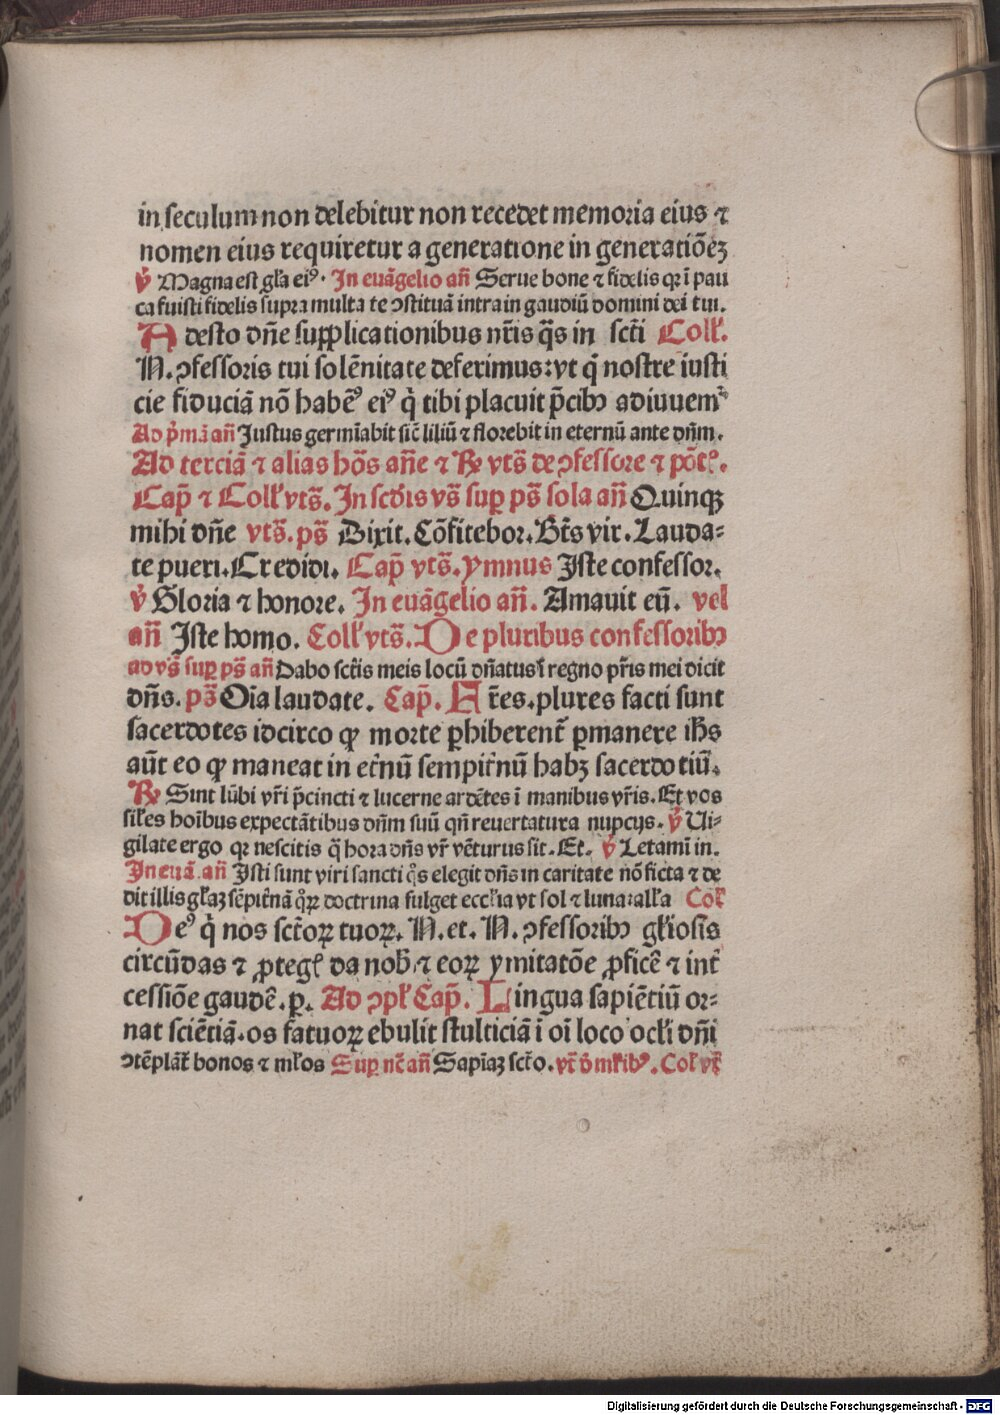 in seculum non delebitur non recedet memoria eius ⁊
nomen eius requiretur a generatione in generatiōeʒ
℣ Magna est gl̄a eiꝰ. In euāgelio an̄ Serue bone ⁊ fidelis qr ī pau
ca fuisti fidelis supra multa te ↄstituā intra in gaudiū domini dei tui.
Adesto dn̄e supplicationibus nr̄is q̄s in sct̄i Coll̄.
N. ↄfessoris tui solēnitate deferimus: vt q̄ nostre iusti
cie fiduciā nō habēꝰ eiꝰ q̇ tibi placuit p̄cibꝫ adiuuem̄
Ad p̄mā an̄ Justus germīabit sic̄ liliū ⁊ florebit in eternū ante dn̄m.
Ad terciā ⁊ alias hōs an̄e ⁊ ℞ vts̄ de ↄfessore ⁊ pōt.
Cap̄ ⁊ Coll̄ vts̄. In scd̄is vs̄ suꝑ ps̄ sola an̄ Quinqꝫ
mihi dn̄e vts̄. ps̄ Dixit. Cōfitebor. Bt̄s vir. Lauda-
te pueri. Credidi. Cap̄ vts̄. ymnus Iste confessor.
℣ Gloria ⁊ honore. In euāgelio an̄. Amauit eū. vel
an̄ Iste homo. Coll̄ vts̄. De pluribus confessoribꝫ
ad vs̄ suꝑ ps̄ an̄ Dabo sct̄is meis locū dn̄atus ī regno pr̄is mei dicit
dn̄s. ps̄ Oīa laudate. Cap̄. Fr̄es. plures facti sunt
sacerdotes idcirco ꝙ morte ꝓhiberent̄ ꝑmanere ih̄s
aūt eo ꝙ maneat in et̄nū sempit̄nū habꝫ sacerdotiū.
℞ Sint lūbi vr̄i p̄cincti ⁊ lucerne ardētes ī manibus vr̄is. Et vos
sil̄es hoībus expectātibus dn̄m suū qn̄ reuertatur a nupcijs. ℣ Ui-
gilate ergo qꝛ nescitis q̄ hora dn̄s vr̄ vēturus sit. Et. ℣ Letamī in.
In euā. an̄ Isti sunt viri sancti q̊s elegit dn̄s in caritate nō ficta ⁊ de
dit illis gl̄aʒ sēpit̄nā q̊ꝝ doctrina fulget eccl̄ia vt sol ⁊ luna all̄a Col̄
Deꝰ q̇ nos sct̄oꝝ tuoꝝ. N. et. N. ↄfessoribꝫ gl̄iosis
circūdas ⁊ ꝓtegis da nob̄ ⁊ eoꝝ ymitatōe ꝓficē ⁊ int̄
cessiōe gaudē. ꝑ. Ad ↄpl̄ Cap̄. Lingua sapiētiū or-
nat sciētiā. os fatuoꝝ ebulit stulticiā ī oī loco ocl̄i dn̄i
ↄtēplāt̄ bonos ⁊ ml̄os Suꝑ nc̄ an̄ Sapīaʒ sct̄o. vt̄ d̄ mr̄ibꝰ. Col̄ vt̄
Digitalisierung gefördert durch die Deutsche Forschungsgemeinschaft - DFG